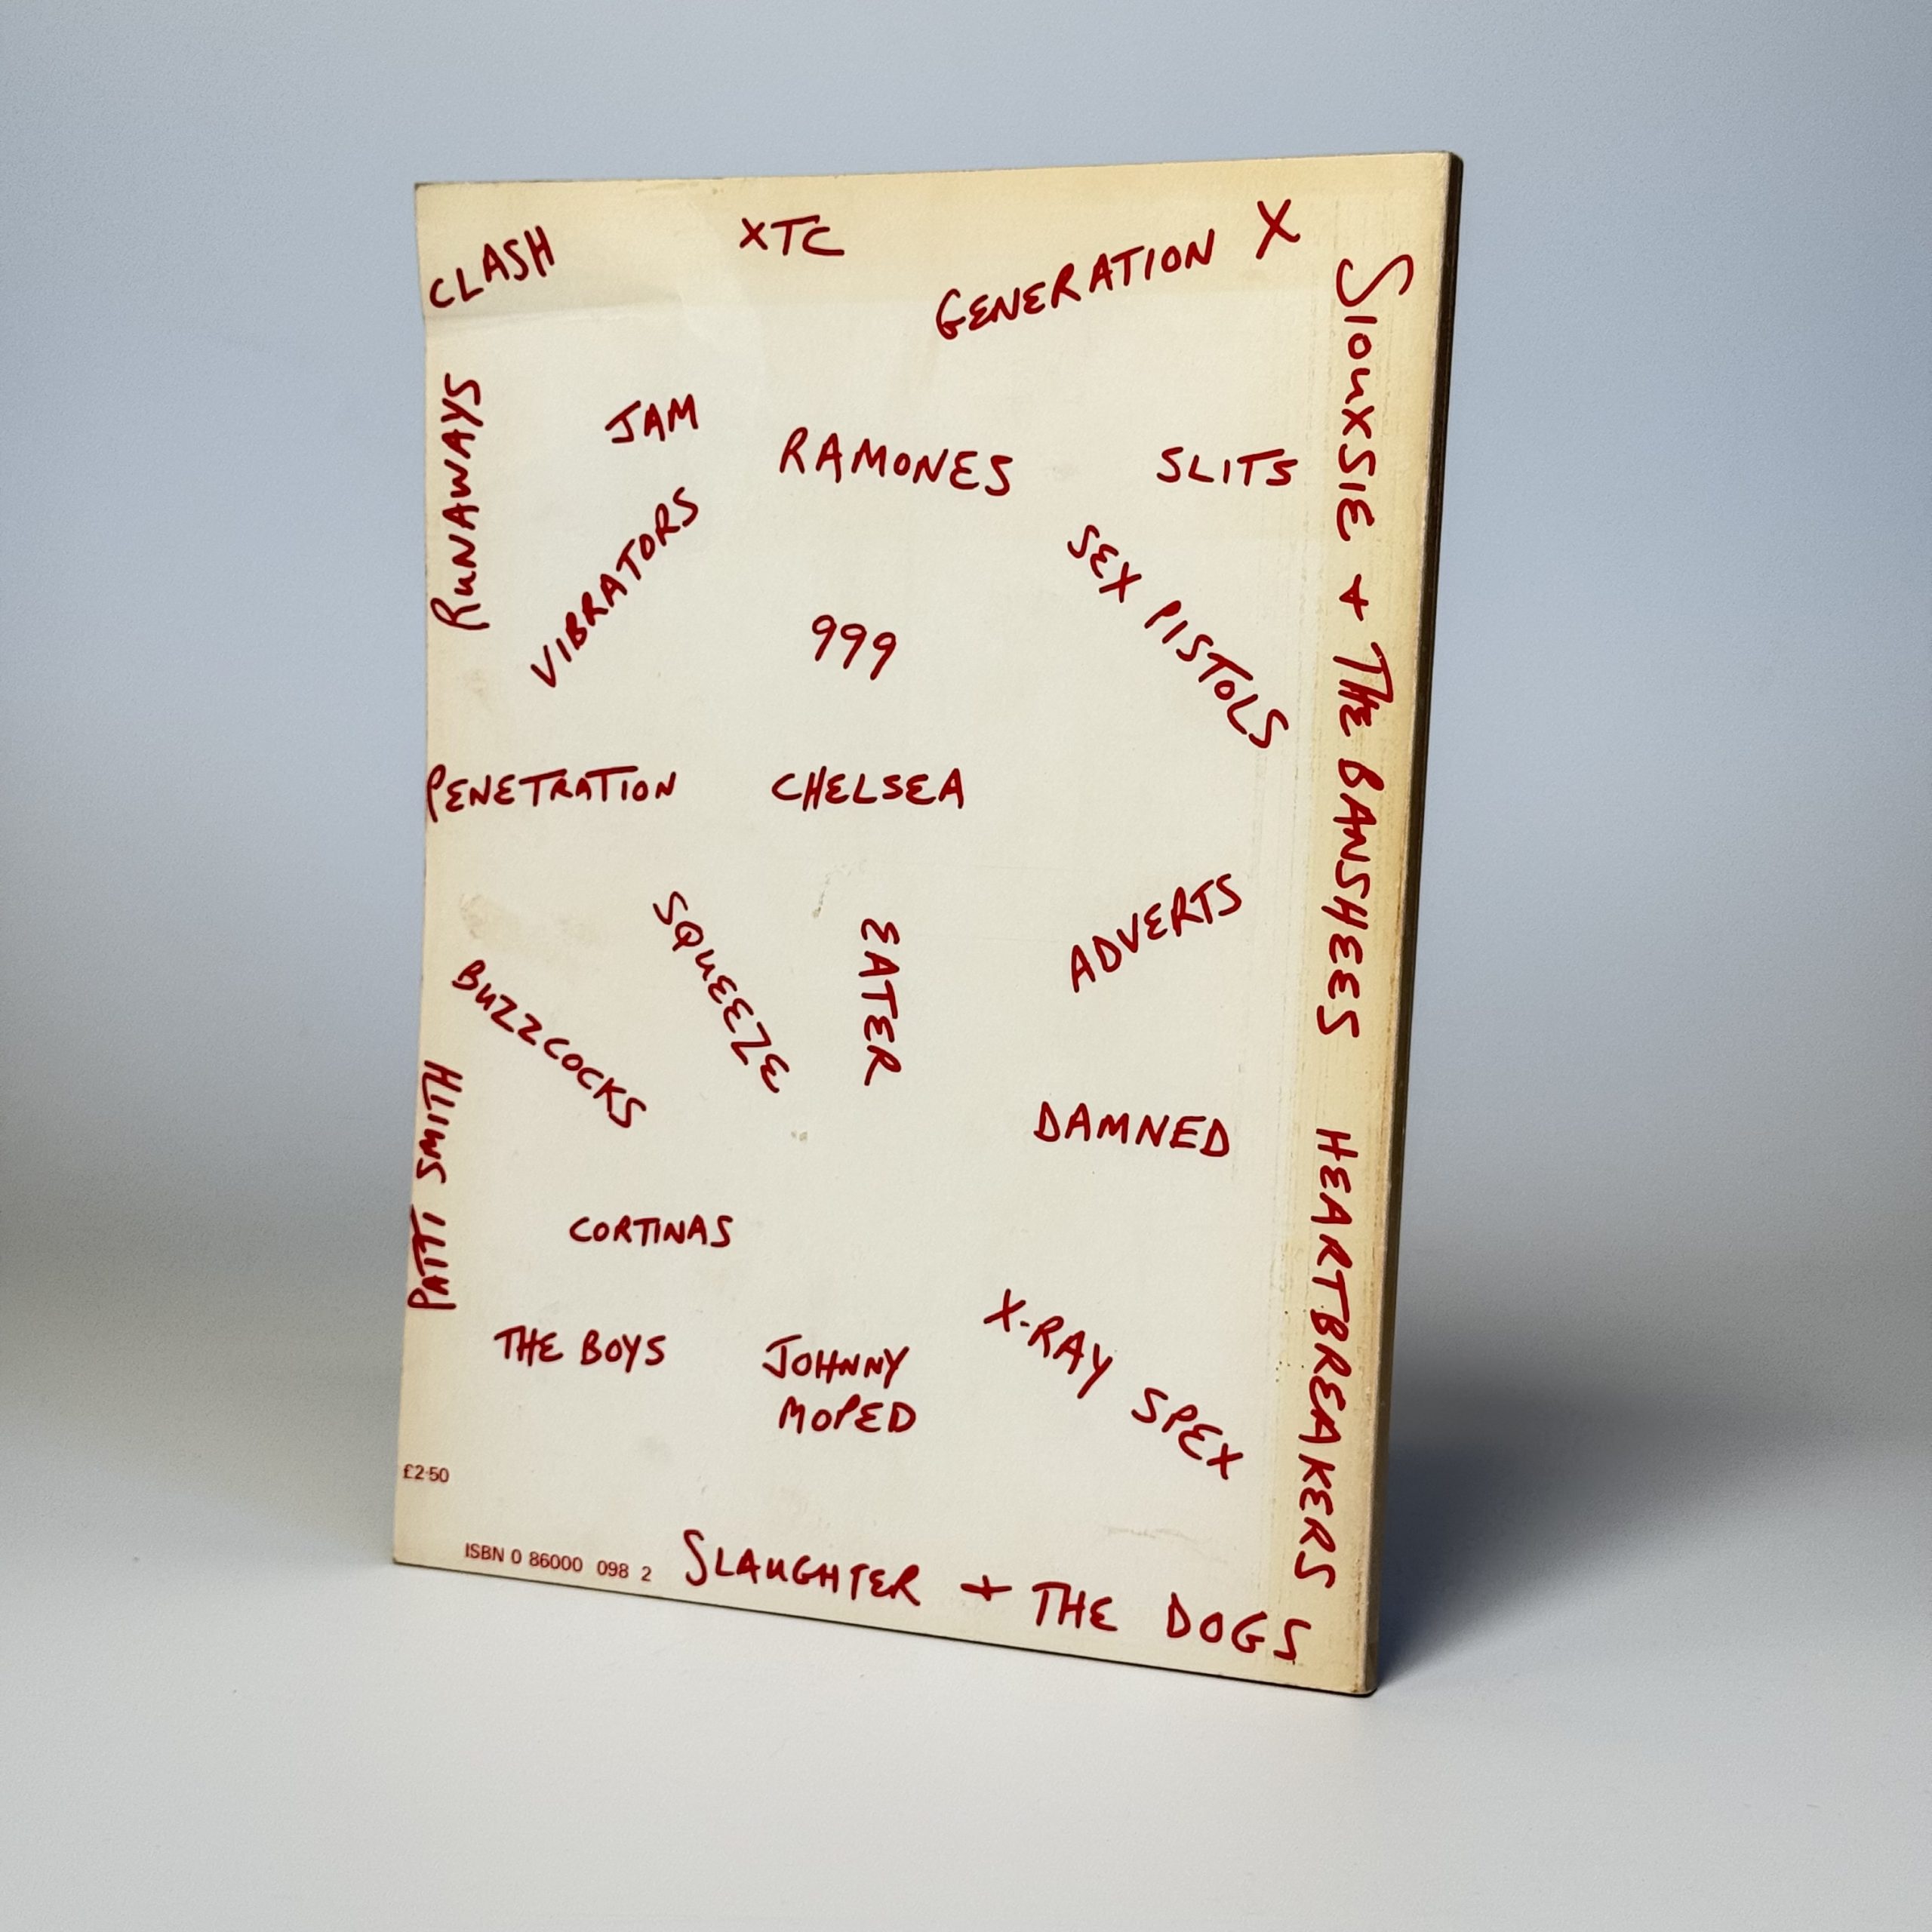 CLASH
XTC
GENERATION X
SIOUXSIE + THE BANSHEES
RUNAWAYS
JAM
RAMONES
SLITS
VIBRATORS
999
SEX PISTOLS
PENETRATION
CHELSEA
SQUEEZE
EATER
ADVERTS
BUZZCOCKS
DAMNED
HEARTBREAKERS
PATTI SMITH
CORTINAS
THE BOYS
JOHNNY
MOPED
X-RAY SPEX
£2·50
ISBN 0 86000 098 2
SLAUGHTER + THE DOGS